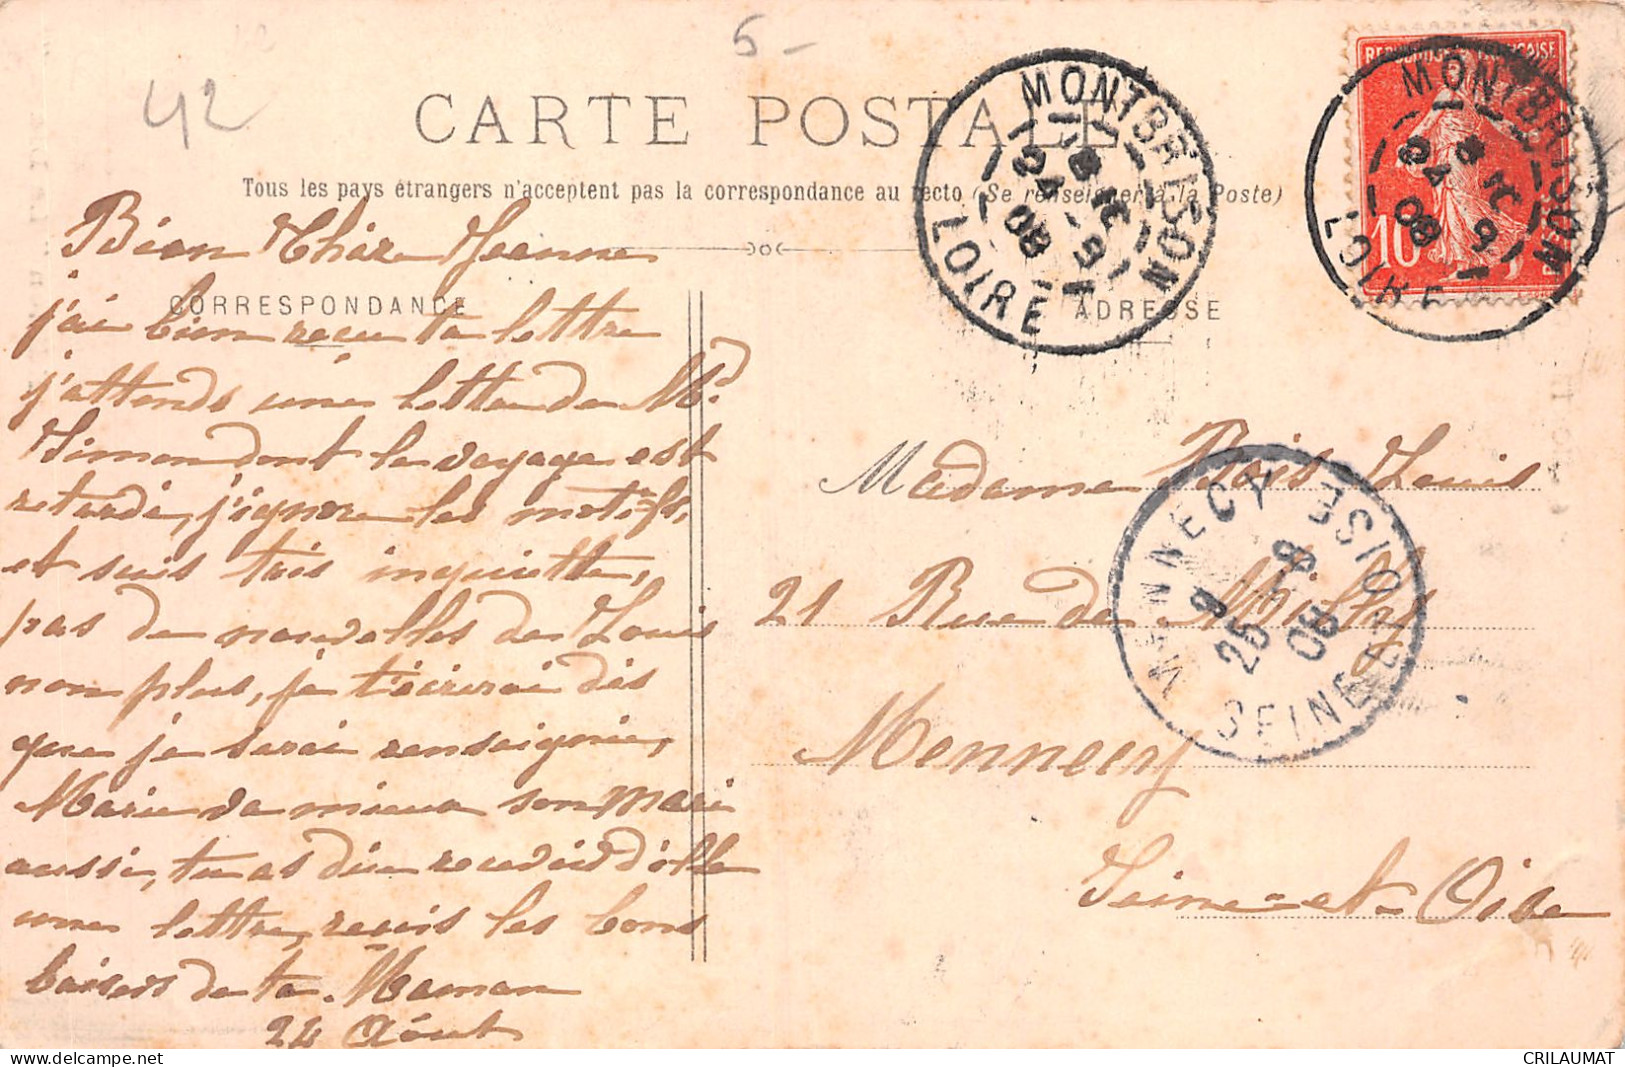 42
5-
CARTE POSTALE
Tous les pays étrangers n'acceptent pas la correspondance au recto (Se renseigner à la Poste)
CORRESPONDANCE
ADRESSE
REPUBLIQUE FRANÇAISE
10
MONTBRISON
24 - 8
08
LOIRE
MONTBRISON
24 - 8
08
LOIRE
Bien Chère Jeanne
j'ai bien reçu ta lettre
j'attends une lettre de Md
Simon dont le voyage est
retardé, j'ignore les motifs,
et suis très inquiette,
pas de nouvelles de Louis
non plus, je t'écrirai dès
que je serai renseignée,
Marie va mieux son mari
aussi, tu as dû recevoir d'elle
une lettre, reçois les bons
baisers de ta Maman
24 Août
Madame Bois Louis
21 Rue de Milly
Mennecy
Seine-et-Oise
MENNECY
25 - 8
08
SEINE ET OISE
CRILAUMAT